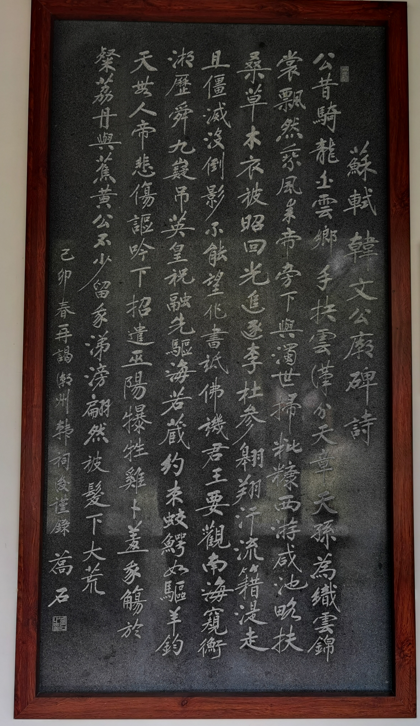 蘇軾韓文公廟碑詩
公昔騎龍白雲鄉手抉雲漢分天章天孫為織雲錦
裳飄然乘風來帝旁下與濁世掃粃糠西游咸池略扶
桑草木衣被昭回光追逐李杜參翱翔汗流籍湜走
且僵滅沒倒影不能望作書詆佛譏君王要觀南海窺衡
湘歷舜九嶷弔英皇祝融先驅海若藏約束蛟鱷如驅羊鈞
天無人帝悲傷謳吟下招遣巫陽犦牲雞卜羞我觴於
粲荔丹與蕉黃公不少留我涕滂翩然被髮下大荒
己卯春再謁潮州韓祠敬謹錄 嵩石